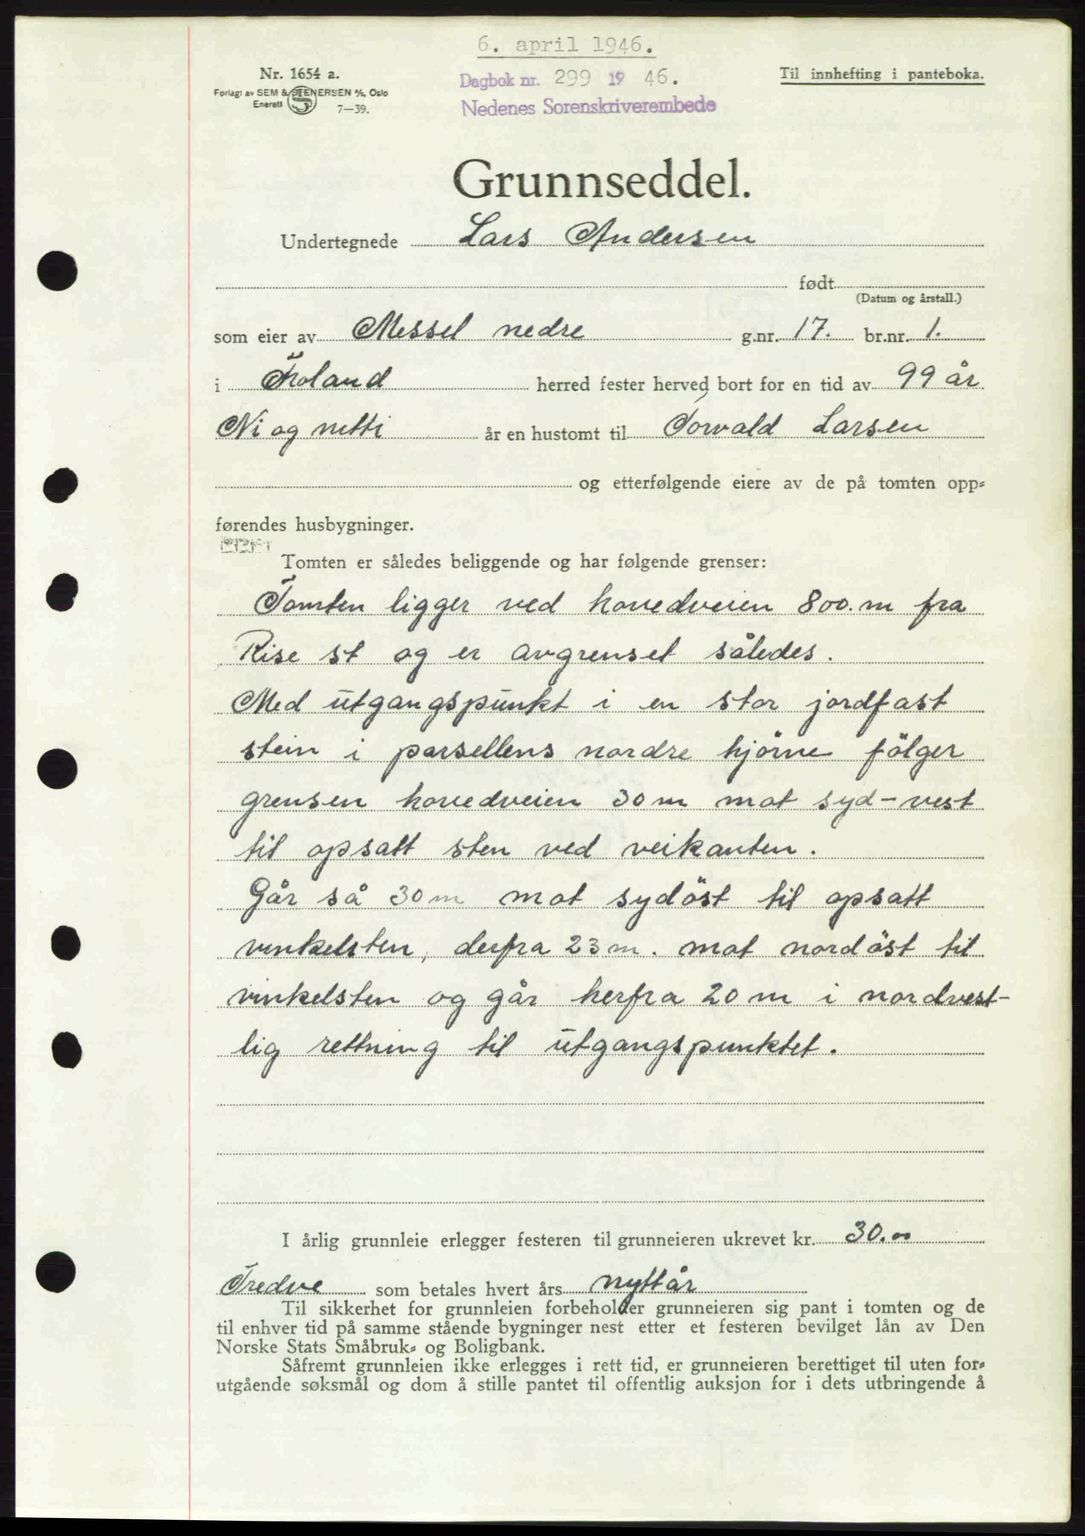 6. april 1946.
Nr. 1654 a.
Forlagt av SEM & STENERSEN A/S, Oslo
Enerett
7—39.
Dagbok nr. 299 1946.
Nedenes Sorenskriverembede
Til innhefting i panteboka.
Grunnseddel.
Undertegnede Lars Andersen
født
(Datum og årstall.)
som eier av Messel nedre g.nr. 17. br.nr. 1.
i Froland herred fester herved bort for en tid av 99 år
Ni og nitti år en hustomt til Torvald Larsen
og etterfølgende eiere av de på tomten opp-
førendes husbygninger.
Tomten er således beliggende og har følgende grenser:
Tomten ligger ved hovedveien 800.m fra
Rise st og er avgrenset således.
Med utgangspunkt i en stor jordfast
stein i parsellens nordre hjörne fölger
grensen hovedveien 30 m mot syd-vest
til opsatt sten ved veikanten.
Går så 30 m mot sydöst til opsatt
vinkelsten, derfra 23 m. mot nordöst til
vinkelsten og går herfra 20 m i nordvest-
lig rettning til utgangspunktet.
I årlig grunnleie erlegger festeren til grunneieren ukrevet kr. 30.00
Tredve som betales hvert års nyttår
Til sikkerhet for grunnleien forbeholder grunneieren sig pant i tomten og de
til enhver tid på samme stående bygninger nest etter et festeren bevilget lån av Den
Norske Stats Småbruk- og Boligbank.
Såfremt grunnleien ikke erlegges i rett tid, er grunneieren berettiget til uten for-
utgående søksmål og dom å stille pantet til offentlig auksjon for i dets utbringende å